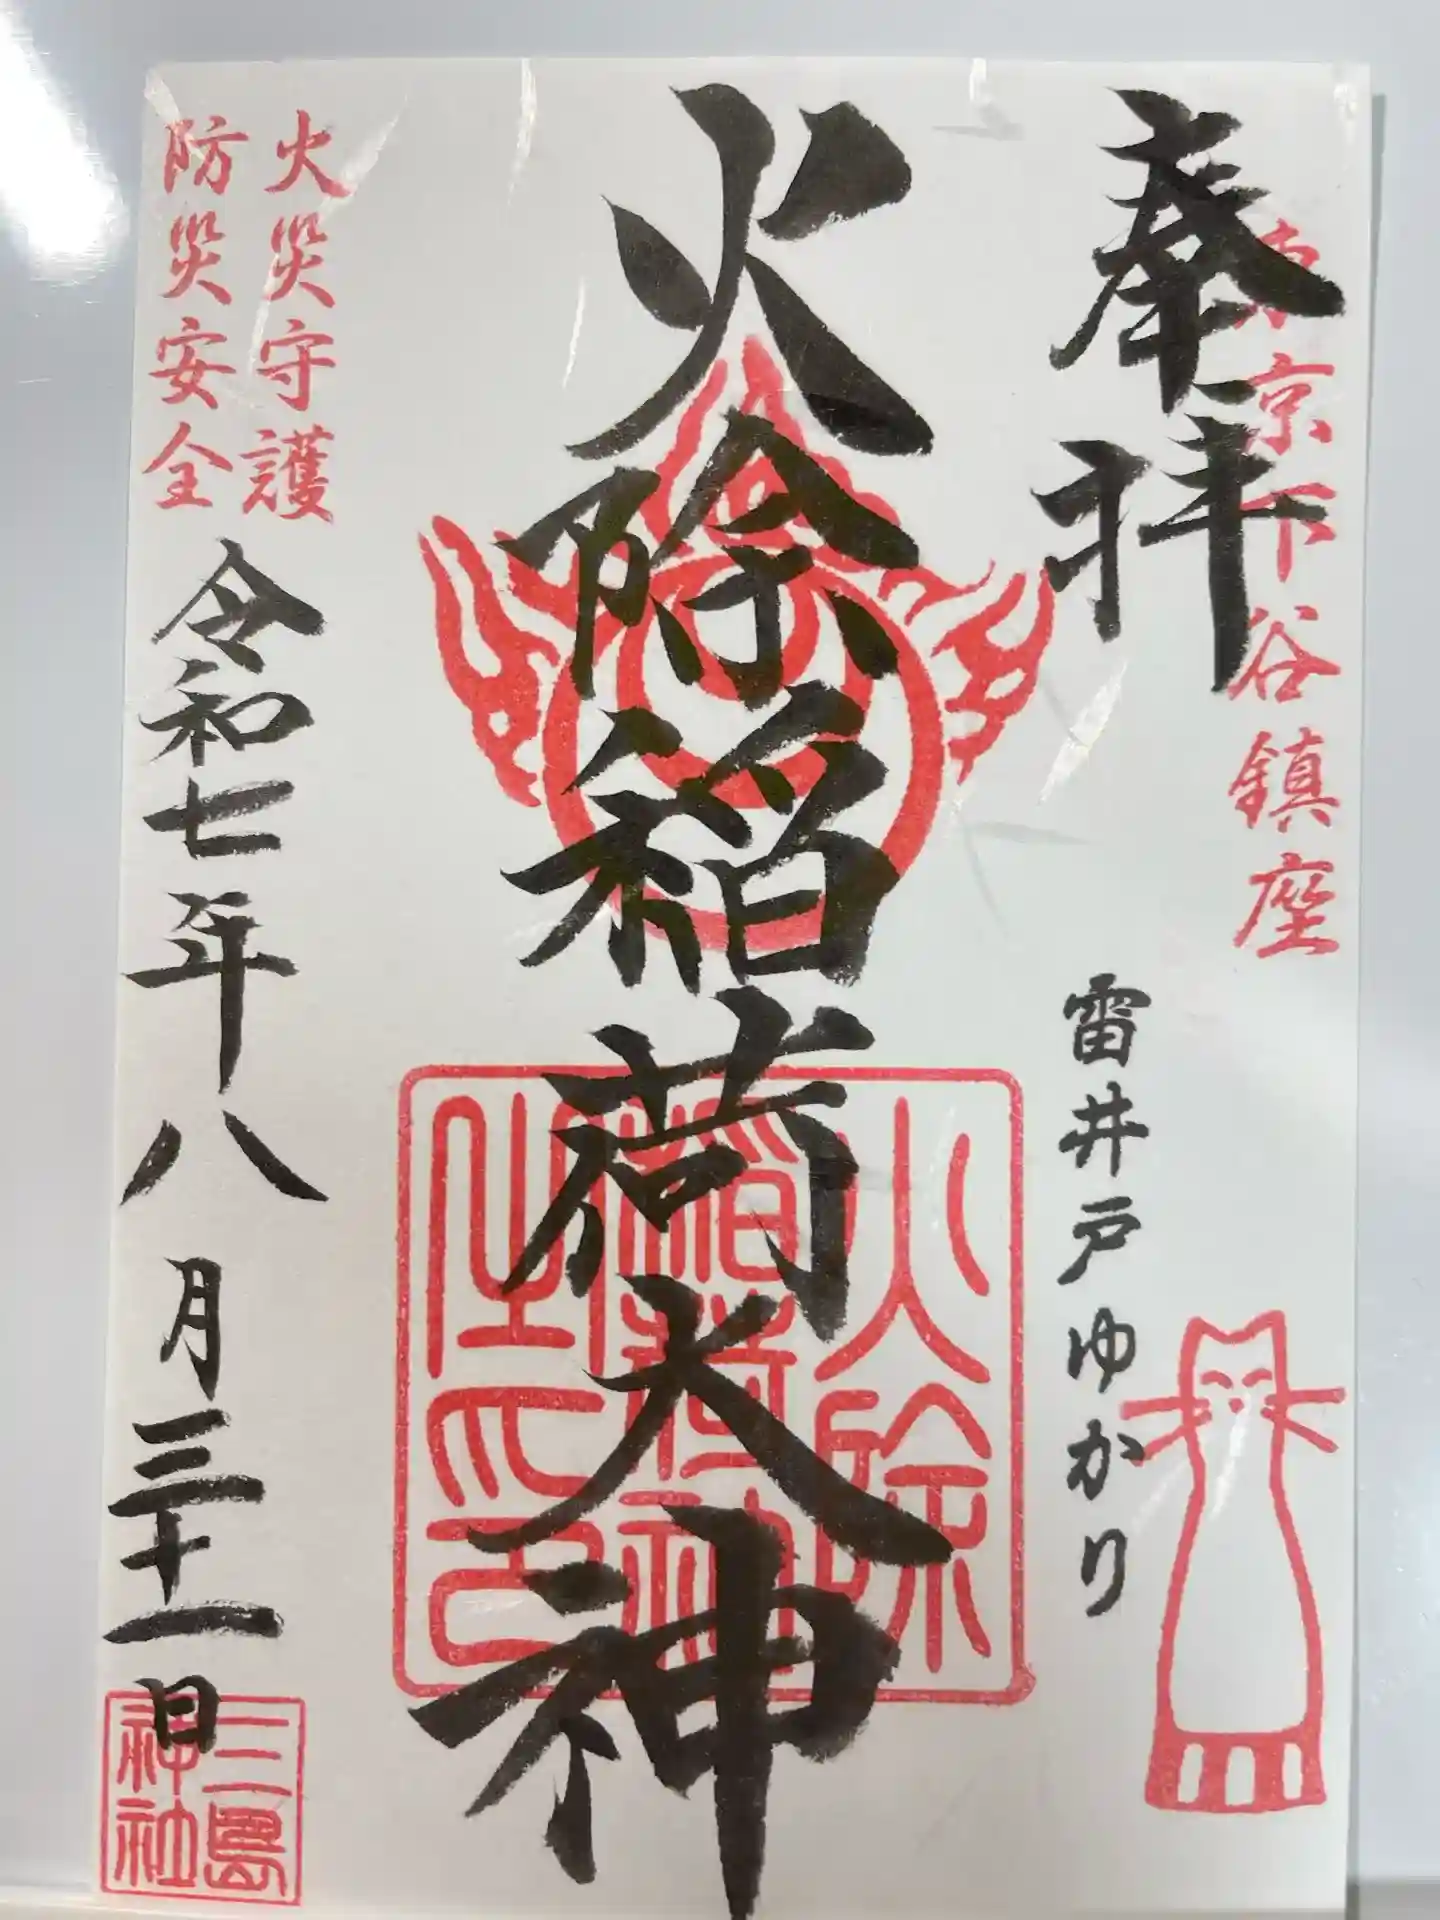 東京下谷鎮座
奉拝
雷井戸ゆかり
火除稲荷大神
火除
稲荷神
之印
火災守護
防災安全
令和七年八月三十一日
三島
神社